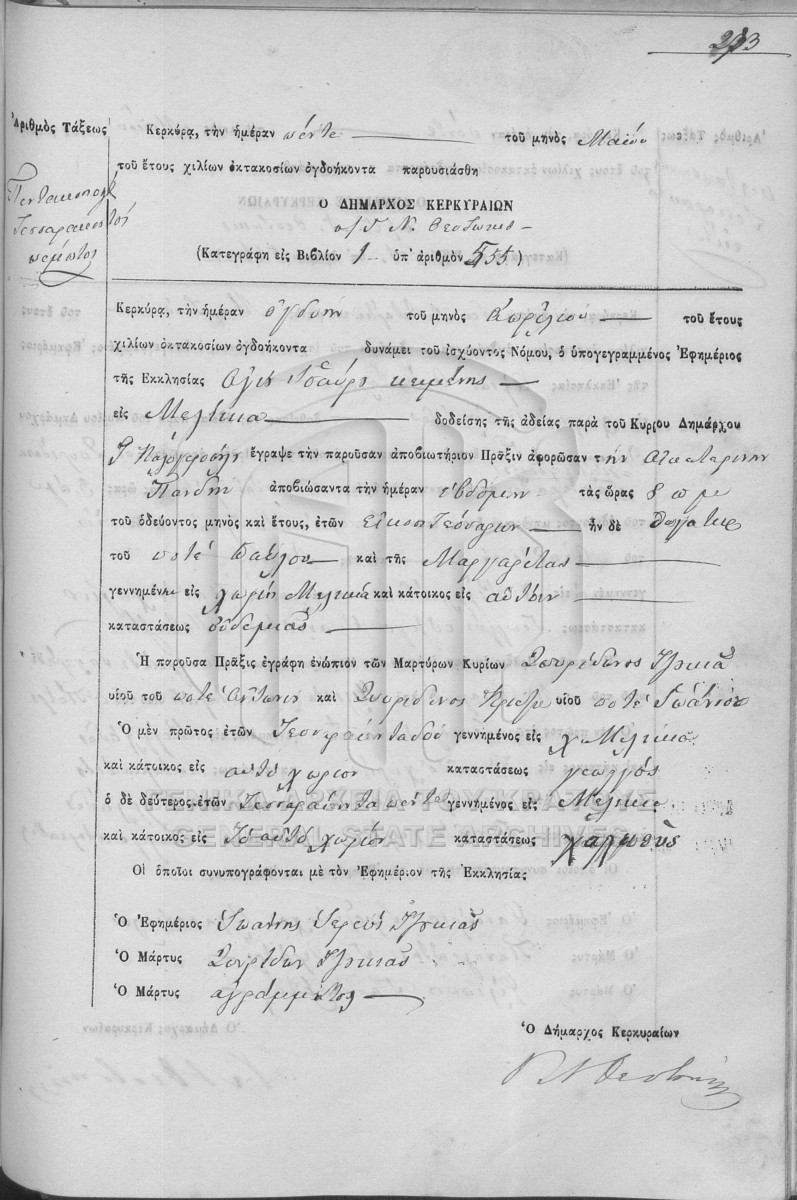 Ἀριθμὸς Τάξεως
τεσσαρακοστός
πέμπτος
Κερκύρᾳ, τὴν ἡμέραν πέντε τοῦ μηνὸς Μαΐου
τοῦ ἔτους χιλίων ὀκτακοσίων ὀγδοήκοντα παρουσιάσθη
Ὁ ΔΗΜΑΡΧΟΣ ΚΕΡΚΥΡΑΙΩΝ
(Κατεγράφη εἰς Βιβλίον 1 ὑπ' ἀριθμὸν 555)
Κερκύρᾳ, τὴν ἡμέραν ὀγδόην τοῦ μηνὸς Ἀπριλίου τοῦ ἔτους
χιλίων ὀκτακοσίων ὀγδοήκοντα δυνάμει τοῦ ἰσχύοντος Νόμου, ὁ ὑπογεγραμμένος Ἐφημέριος
τῆς Ἐκκλησίας κειμένης
εἰς Μελίκια δοθείσης τῆς ἀδείας παρὰ τοῦ Κυρίου Δημάρχου
ἔγραψε τὴν παροῦσαν ἀποβιωτήριον Πρᾶξιν ἀφορῶσαν τὴν
ἀποβιώσαντα τὴν ἡμέραν ἑβδόμην τὰς ὥρας 8 π μ
τοῦ ὁδεύοντος μηνὸς καὶ ἔτους, ἐτῶν εἴκοσι τεσσάρων ἦν δὲ θυγάτηρ
τοῦ ποτέ Παύλου καὶ τῆς Μαργαρίτας
γεννημένη εἰς χωρίον Μελίκια καὶ κάτοικος εἰς αὐτὸ
καταστάσεως οὐδεμιᾶς
Ἡ παροῦσα Πρᾶξις ἐγράφη ἐνώπιον τῶν Μαρτύρων Κυρίων Σπυρίδωνος
υἱοῦ τοῦ ποτέ Ἀντωνίου καὶ Σπυρίδωνος υἱοῦ ποτέ Ἰωάννου
Ὁ μὲν πρῶτος ἐτῶν τεσσαράκοντα δύο γεννημένος εἰς χ. Μελίκια
καὶ κάτοικος εἰς αὐτὸ χωρίον καταστάσεως γεωργός
ὁ δὲ δεύτερος ἐτῶν τεσσαράκοντα πέντε γεννημένος εἰς Μελίκια
καὶ κάτοικος εἰς τὸ αὐτὸ χωρίον καταστάσεως
Οἱ ὁποῖοι συνυπογράφονται μὲ τὸν Ἐφημέριον τῆς Ἐκκλησίας
Ὁ Ἐφημέριος Ἰωάννης ἱερεύς
Ὁ Μάρτυς Σπυρίδων
Ὁ Μάρτυς ἀγράμματος
Ὁ Δήμαρχος Κερκυραίων
ΓΕΝΙΚΑ ΑΡΧΕΙΑ ΤΟΥ ΚΡΑΤΟΥΣ
GENERAL STATE ARCHIVES